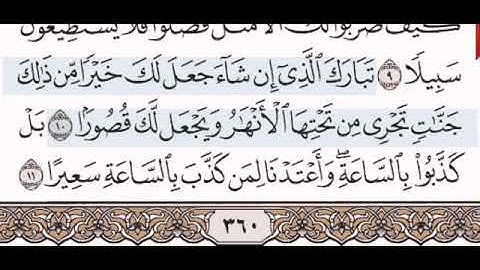 كَيْفَ ضَرَبُوا۟ لَكَ ٱلْأَمْثَٰلَ فَضَلُّوا۟ فَلَا يَسْتَطِيعُونَ
سَبِيلًا ٩ تَبَارَكَ ٱلَّذِىٓ إِن شَآءَ جَعَلَ لَكَ خَيْرًا مِّن ذَٰلِكَ
جَنَّٰتٍ تَجْرِى مِن تَحْتِهَا ٱلْأَنْهَٰرُ وَيَجْعَل لَّكَ قُصُورًۢا ١٠ بَلْ
كَذَّبُوا۟ بِٱلسَّاعَةِ ۖ وَأَعْتَدْنَا لِمَن كَذَّبَ بِٱلسَّاعَةِ سَعِيرًا ١١
٣٦٠